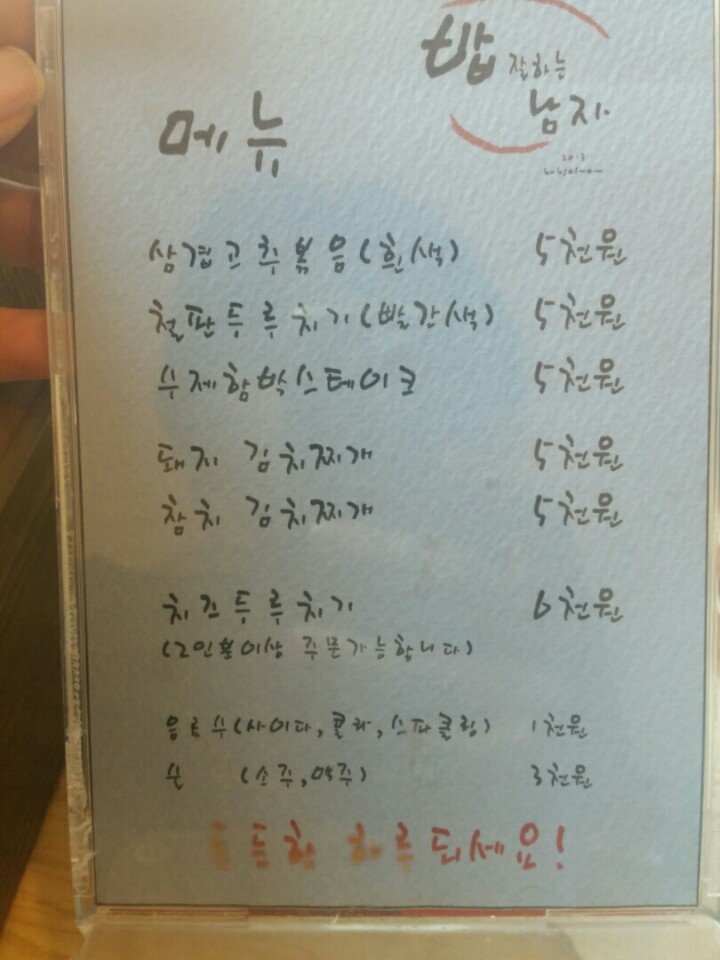 밥 잘하는
남자
2013
메뉴
삼겹고추볶음(흰색) 5천원
철판두루치기(빨간색) 5천원
수제함박스테이크 5천원
돼지 김치찌개 5천원
참치 김치찌개 5천원
치즈두루치기 6천원
(2인분이상 주문가능합니다)
음료수(사이다,콜라,스파클링) 1천원
술 (소주,맥주) 3천원
든든한 하루되세요!